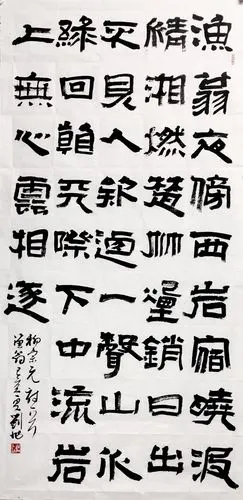 漁翁夜傍西岩宿曉汲
清湘燃楚竹煙銷日出
不見人欸迺一聲山水
綠回看天際下中流岩
上無心雲相逐
柳宗元詩
漁翁 劉旭